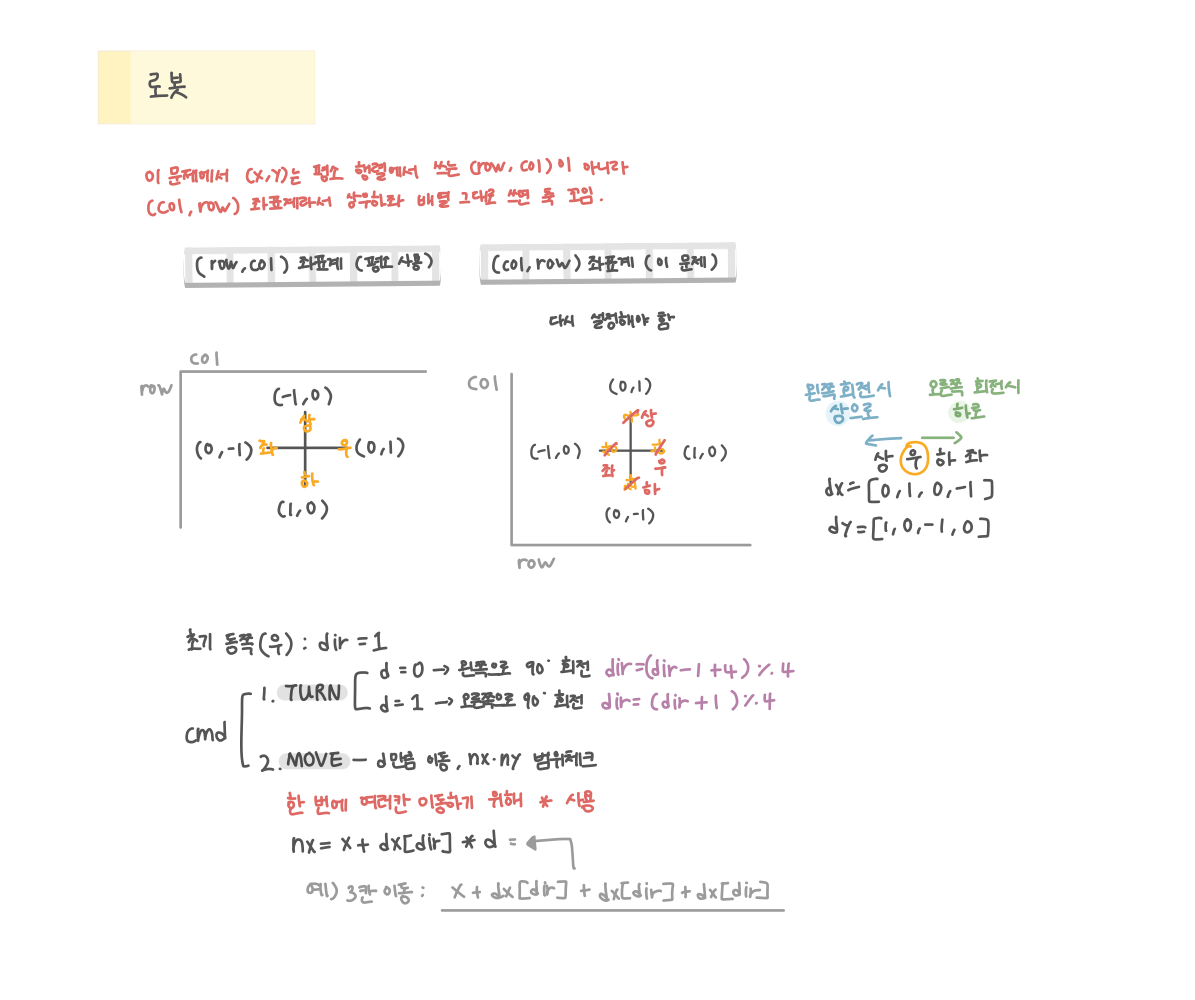 로봇
이 문제에서 (x,y)는 평소 행렬에서 쓰는 (row, col)이 아니라
(col, row) 좌표계라서 상우하좌 배열 그대로 쓰면 축 꼬임.
(row, col) 좌표계 (평소 사용)
(col, row) 좌표계 (이 문제)
다시 설정해야 함
col
row
(-1,0)
상
(0,-1) 좌 우 (0,1)
하
(1,0)
col
(0,1)
상
(-1,0) (1,0)
좌 우
하
(0,-1)
row
왼쪽 회전 시
상으로
오른쪽 회전시
하로
상 우 하 좌
dx=[0,1,0,-1]
dy=[1,0,-1,0]
초기 동쪽(우) : dir = 1
cmd
1. TURN
d = 0 → 왼쪽으로 90° 회전 dir=(dir-1+4)%4
d = 1 → 오른쪽으로 90° 회전 dir= (dir+1)%4
2. MOVE — d만큼 이동, nx·ny 범위체크
한 번에 여러칸 이동하기 위해 * 사용
nx= x + dx[dir] * d =
예) 3칸 이동 : x + dx[dir] + dx[dir] + dx[dir]